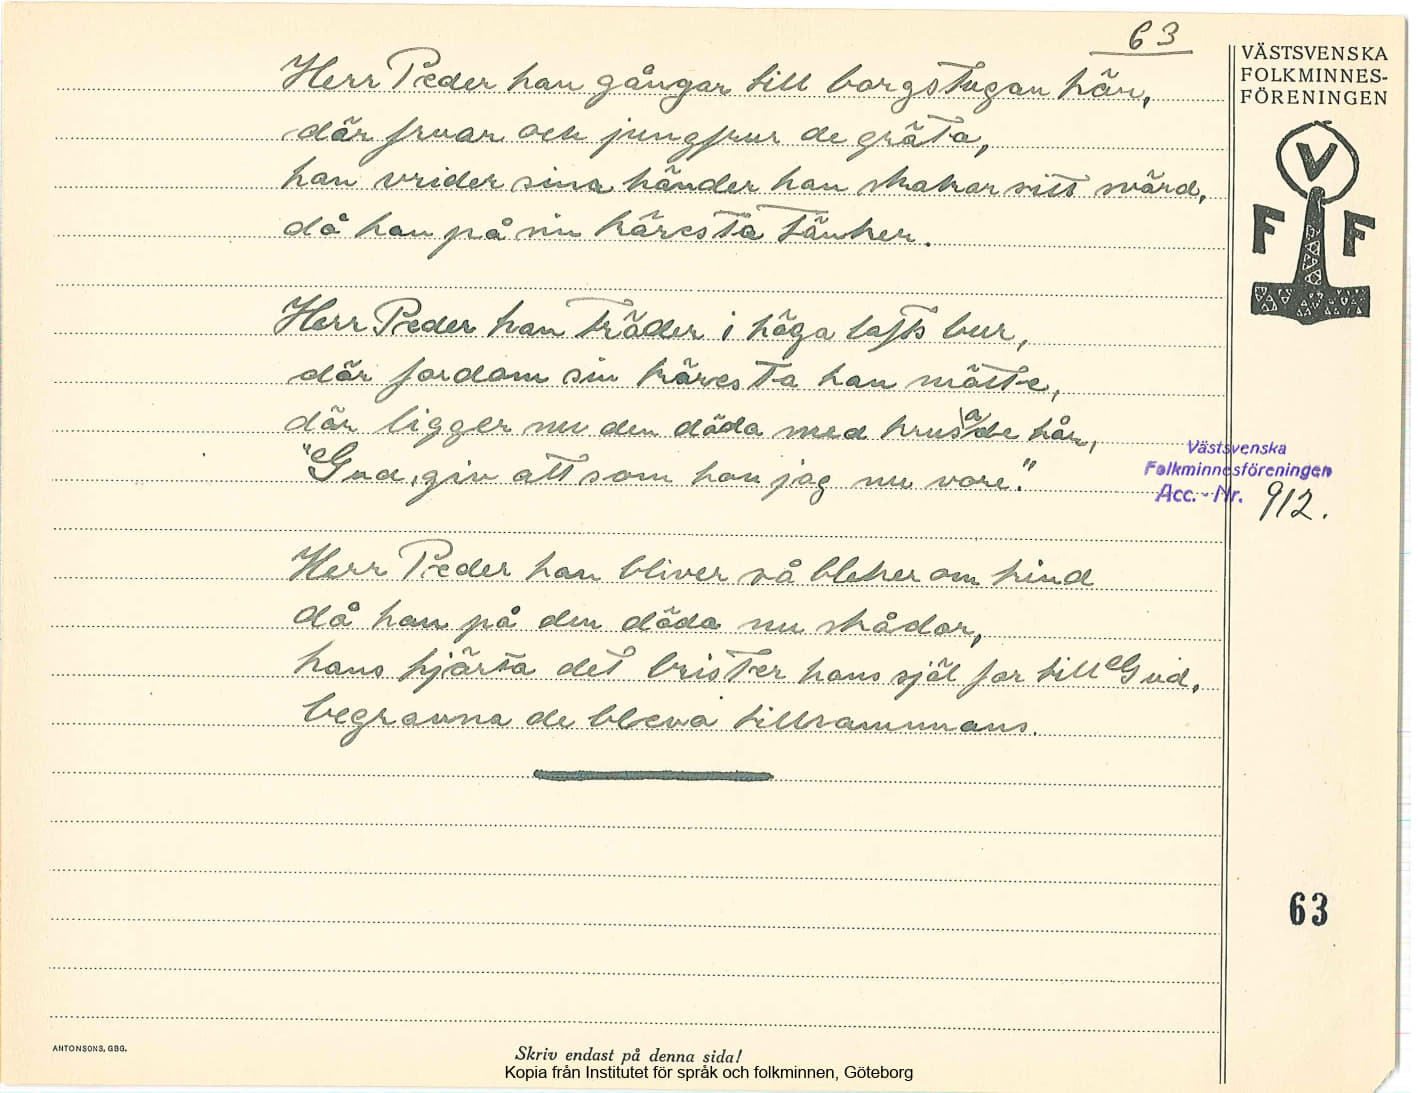 63
Herr Peder han gångar till borgstugan här,
där fruar och jungfrur de gräta,
han vrider sina händer han skakar sitt svärd,
då han på sin käresta tänker.
Herr Peder han träder i höga lofts bur,
där fordom sin käresta han mötte,
där ligger nu den döda med krusade hår,
"Gud, giv att som hon jag nu vore."
Herr Peder han bliver så bleker om kind
då han på den döda nu skådar,
hans hjärta det brister hans själ far till Gud,
begravna de bleva tillsammans.
VÄSTSVENSKA
FOLKMINNES-
FÖRENINGEN
V
F F
Västsvenska
Folkminnesföreningen
Acc. - Nr. 912.
63
ANTONSONS, GBG.
Skriv endast på denna sida!
Kopia från Institutet för språk och folkminnen, Göteborg